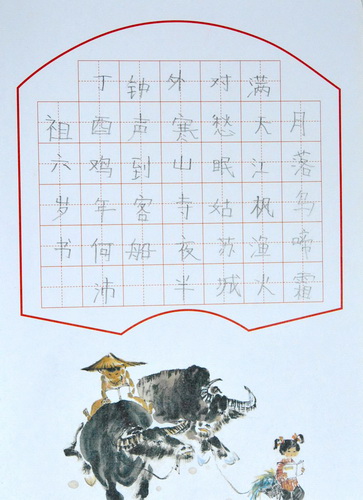 月落乌啼霜
满天江枫渔火
对愁眠姑苏城
外寒山寺夜半
钟声到客船
丁酉鸡年何沛
祖六岁书